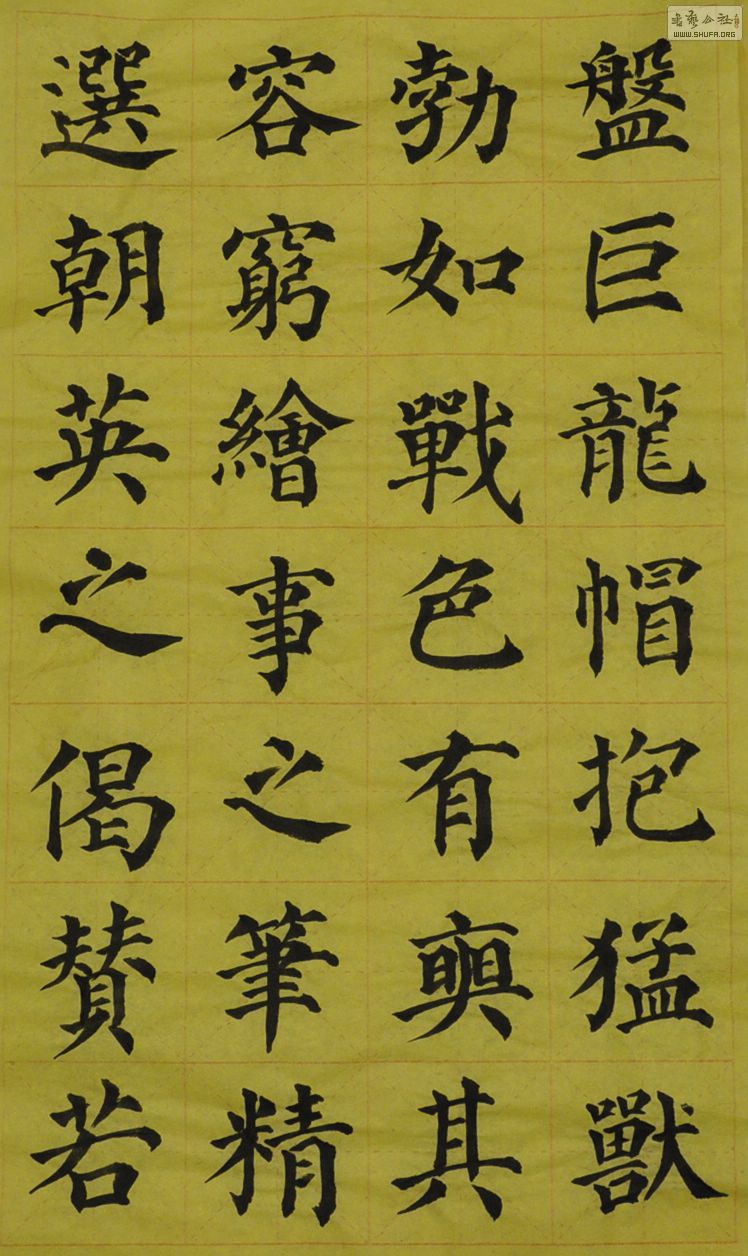 盤巨龍帽抱猛獸
勃如戰色有奭其
容窮繪事之筆精
選朝英之偈贊若
書藝公社
WWW.SHUFA.ORG